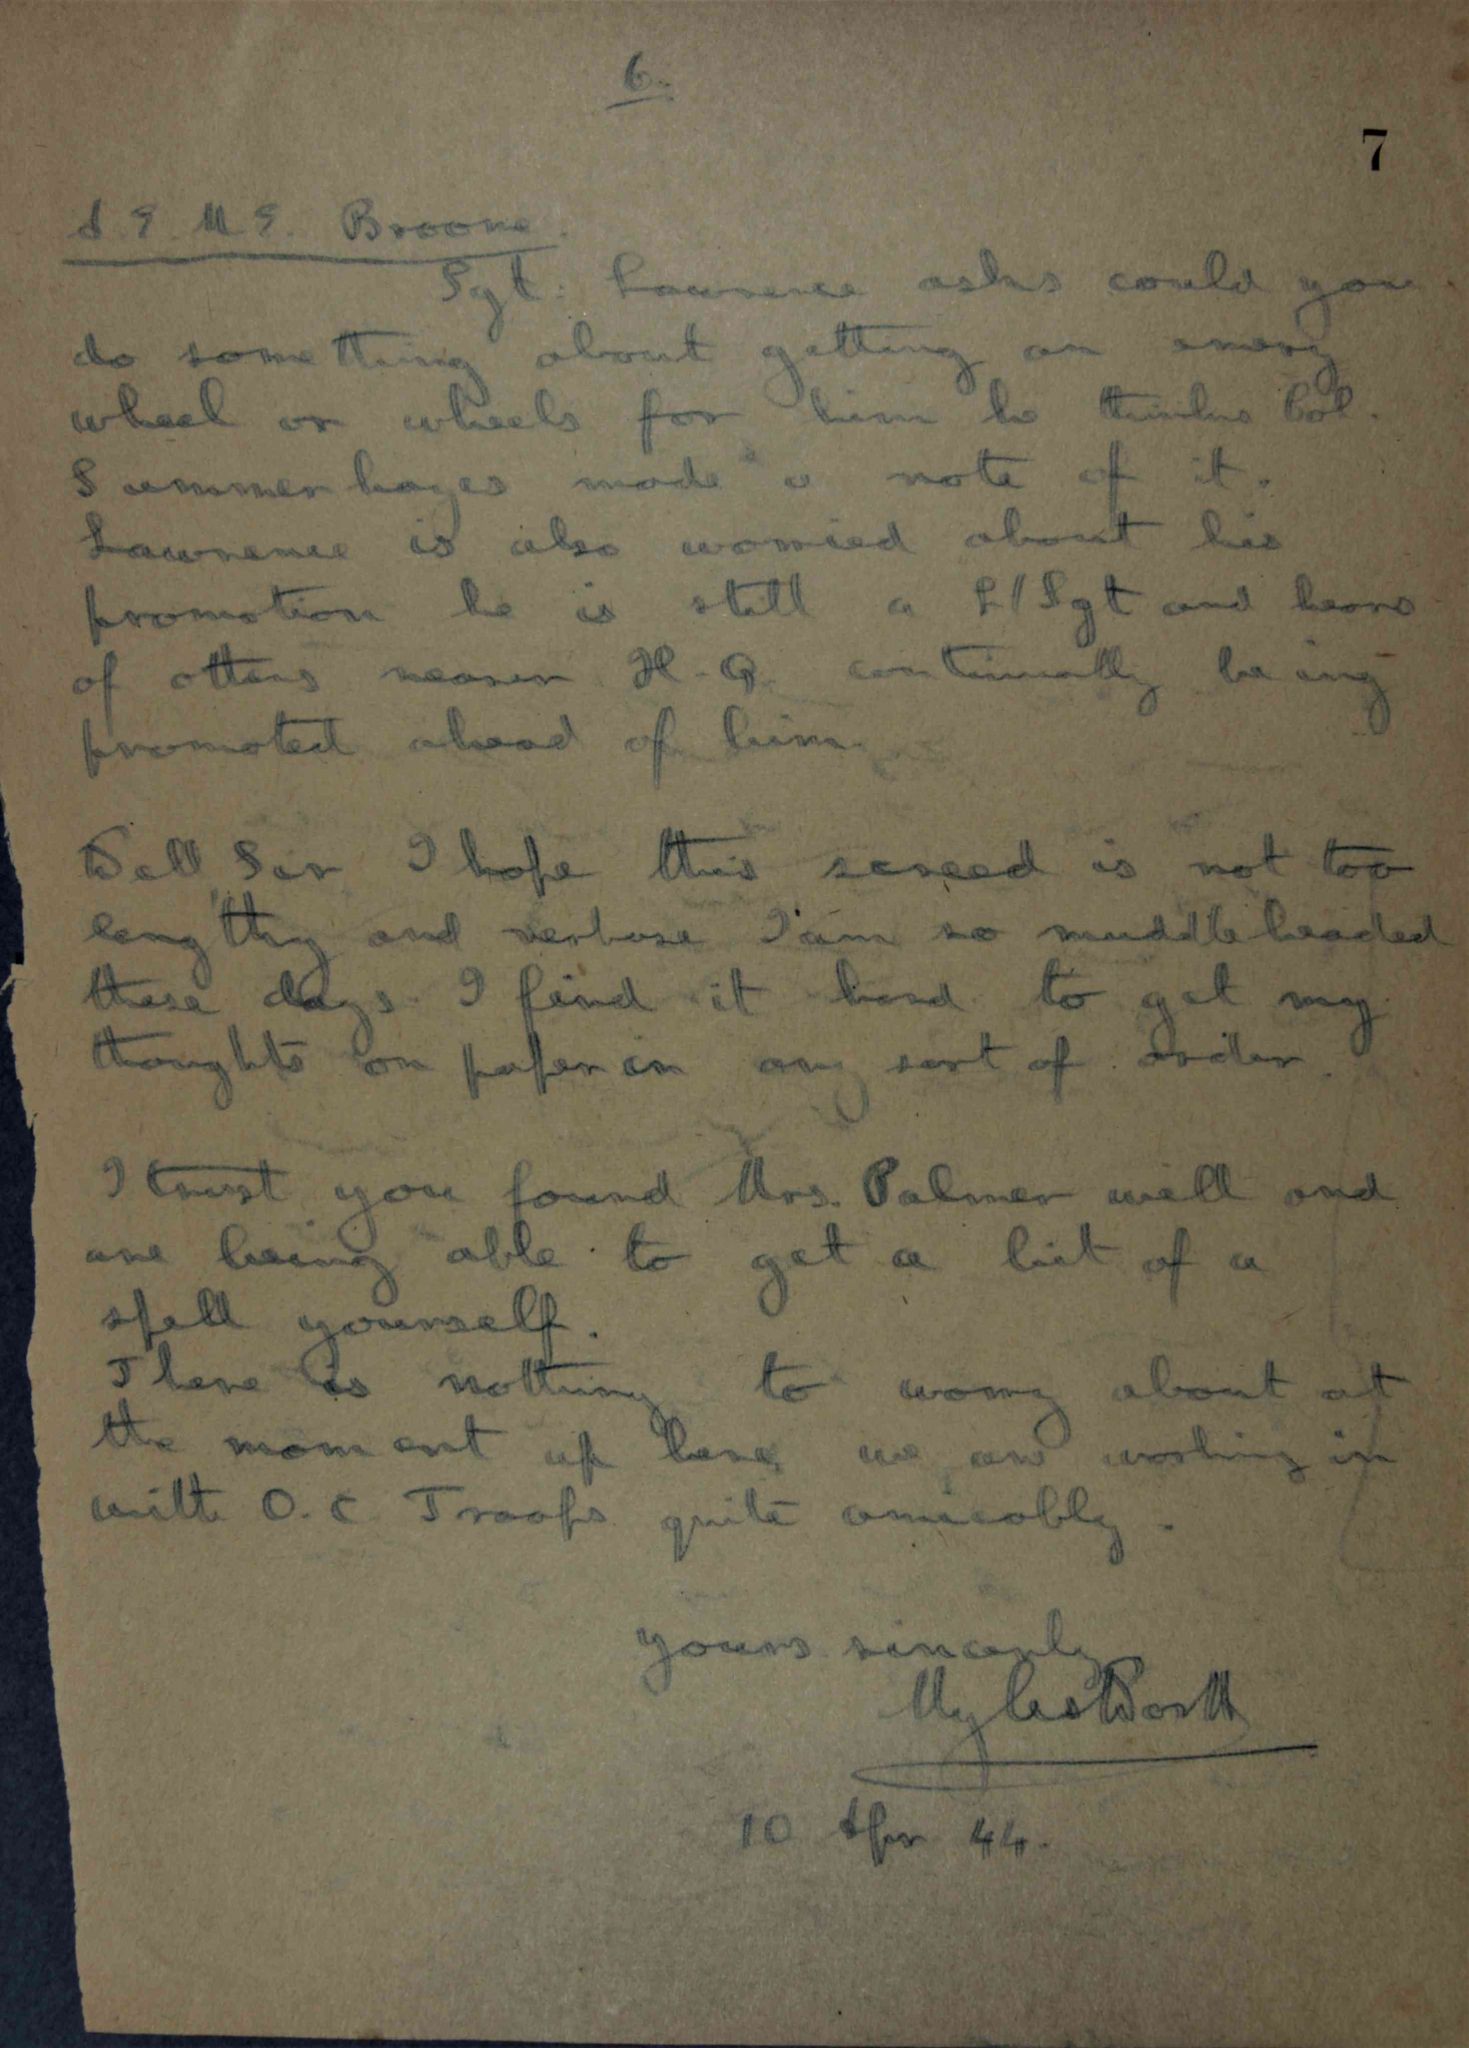 6.
7
A.E.M.E. Broome.
Sgt. Lawrence asks could you
do something about getting an emery
wheel or wheels for him he thinks Col.
Summerhayes made a note of it.
Lawrence is also worried about his
promotion he is still a L/Sgt and hears
of others nearer H.Q. continually being
promoted ahead of him.
Well Sir I hope this screed is not too
lengthy and verbose I am so muddleheaded
these days I find it hard to get my
thoughts on paper in any sort of order.
I trust you found Mrs. Palmer well and
are being able to get a bit of a
spell yourself.
There is nothing to worry about at
the moment up here, we are working in
with O.C. Troops quite amicably.
yours sincerely
Myles
10 Apr 44.